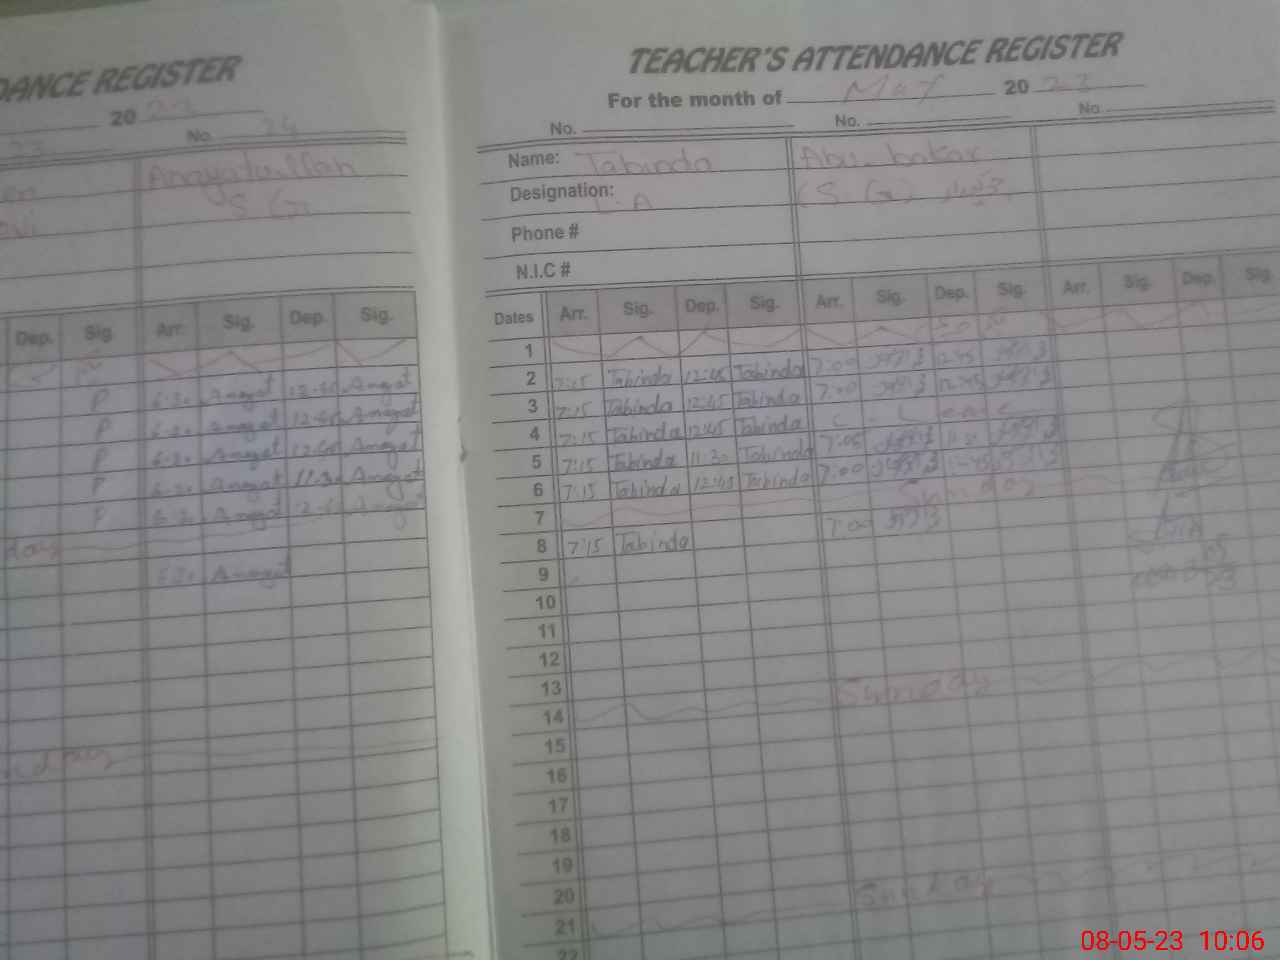 DANCE REGISTER
20 23
No. 24
Anayatullah
S G
Dep. Sig. Arr. Sig. Dep. Sig.
P 6:30 Anayat 12:45 Anayat
P 6:30 Anayat 12:45 Anayat
P 6:30 Anayat 12:45 Anayat
P 6:30 Anayat 11:30 Anayat
P 6:30 Anayat 12:45 Anayat
day
6:30 Anayat
TEACHER'S ATTENDANCE REGISTER
For the month of May 2023
No. No. No.
Name: Tabinda Abu bakar
Designation: L.A (S.G)
Phone #
N.I.C #
Dates Arr. Sig. Dep. Sig. Arr. Sig. Dep. Sig. Arr. Sig. Dep. Sig.
1
2 7:15 Tabinda 12:45 Tabinda 7:00 12:45
3 7:15 Tabinda 12:45 Tabinda 7:00 12:45
4 7:15 Tabinda 12:45 Tabinda C - Leave
5 7:15 Tabinda 11:30 Tabinda 7:00
6 7:15 Tabinda 12:45 Tabinda 7:00
7 Sunday
8 7:15 Tabinda 7:00
9
10
11
12
13
14 Sunday
15
16
17
18
19
20
21 Sunday
22
08-05-23 10:06